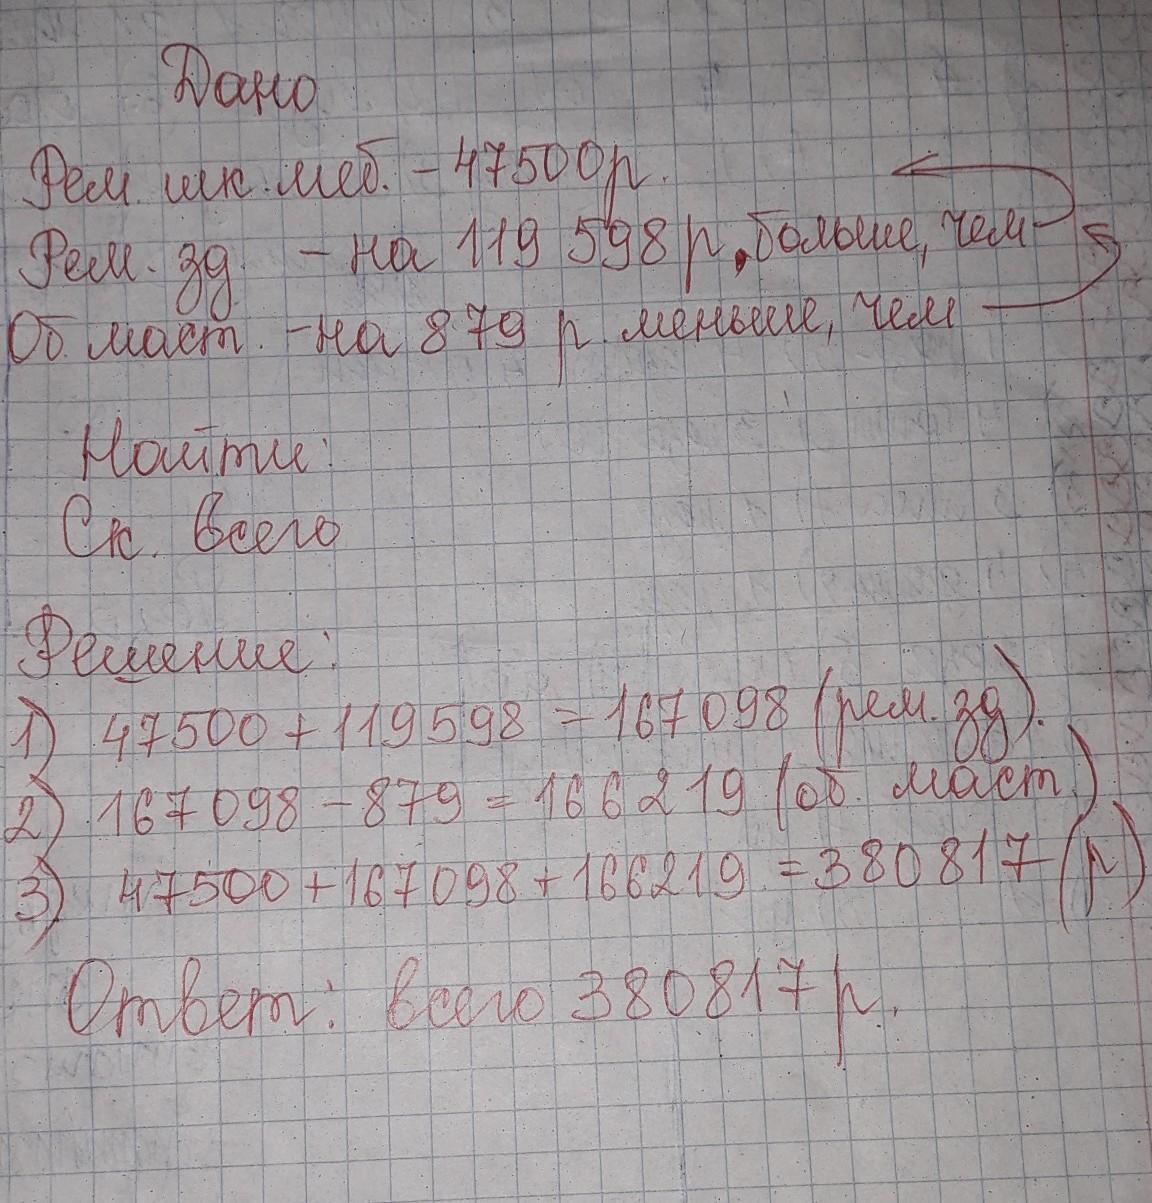 Дано
Рем. шк. меб. - 47500р.
Рем. зд. - на 119 598 р. больше, чем
Об. маст. - на 879 р. меньше, чем
Найти:
Ск. всего
Решение:
1) 47500 + 119598 = 167098 (рем. зд).
2) 167098 - 879 = 166219 (об. маст.)
3) 47500 + 167098 + 166219 = 380817 (р)
Ответ: всего 380817 р.